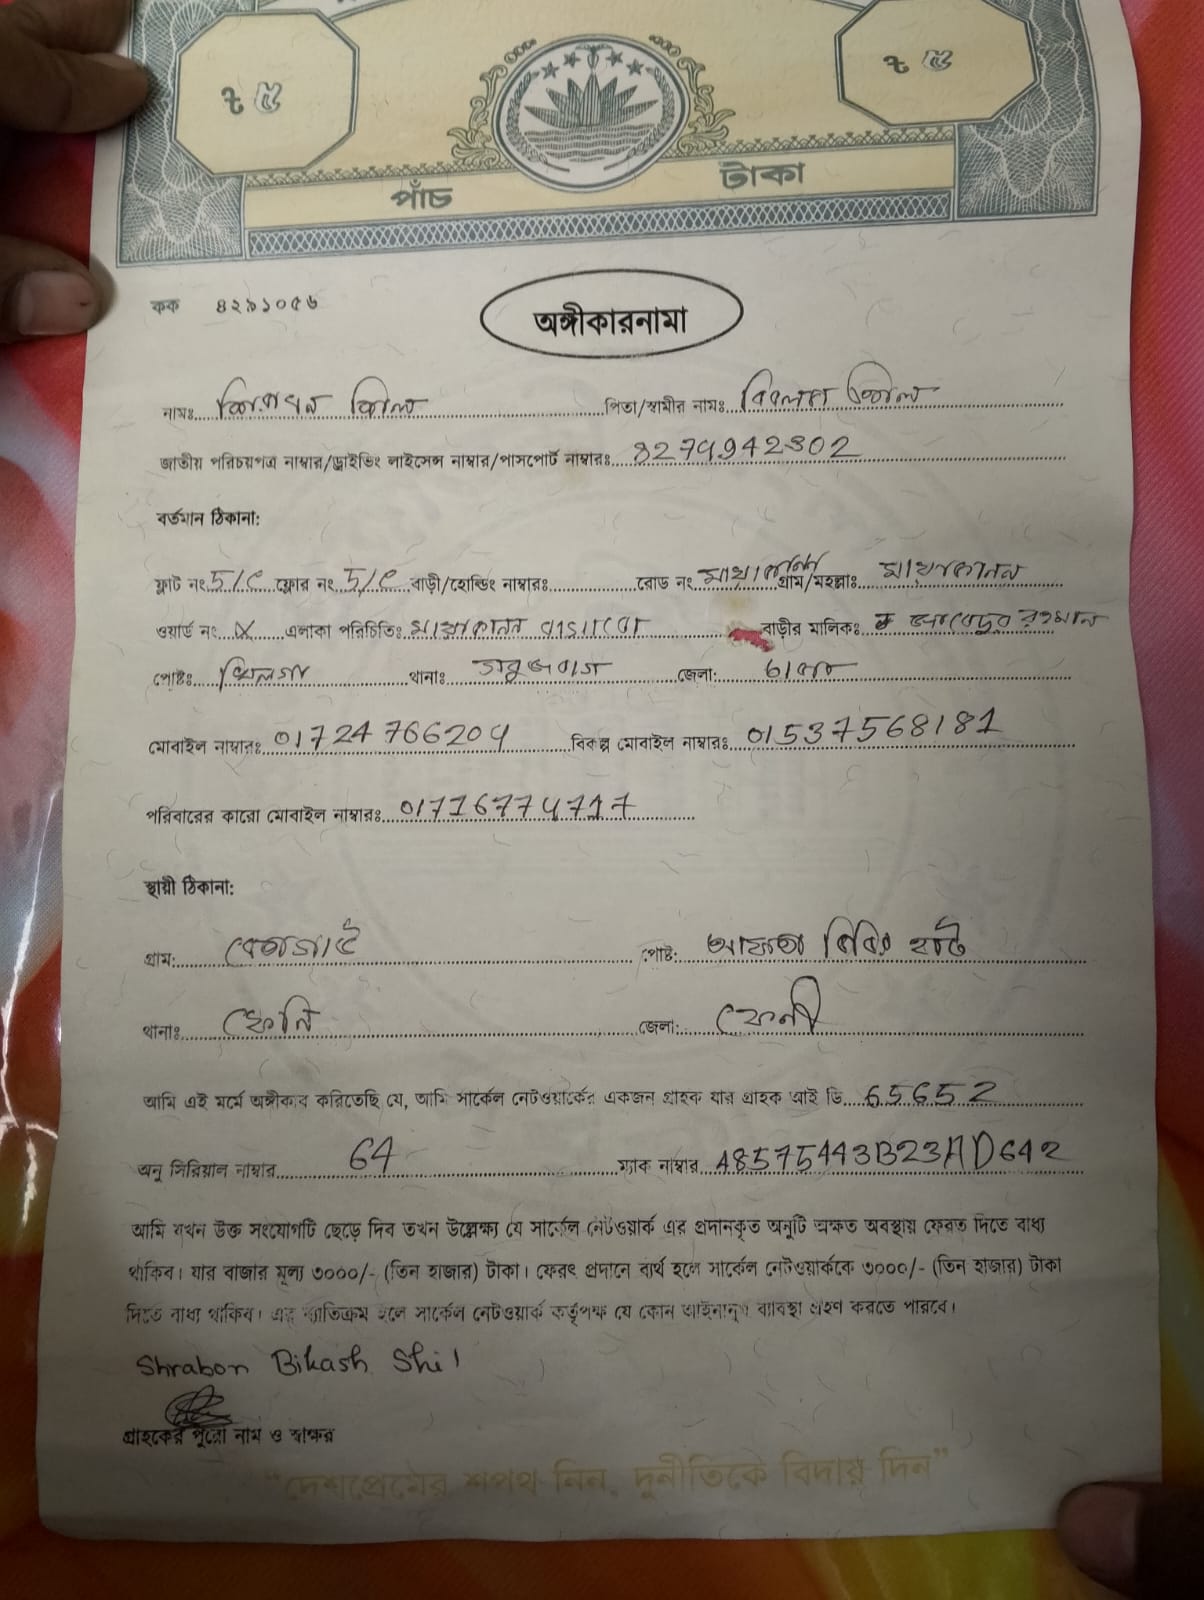 ৳ ৫ ৳ ৫
পাঁচ টাকা
কক ৪২৯১০৫৬
অঙ্গীকারনামা
নামঃ শীল পিতা/স্বামীর নামঃ শীল
জাতীয় পরিচয়পত্র নাম্বার/ড্রাইভিং লাইসেন্স নাম্বার/পাসপোর্ট নাম্বারঃ
বর্তমান ঠিকানা:
ফ্লাট নং 5/C ফ্লোর নং 5/C বাড়ী/হোল্ডিং নাম্বারঃ রোড নং মায়াকানন গ্রাম/মহল্লাঃ মায়াকানন
ওয়ার্ড নং এলাকা পরিচিতিঃ মায়াকানন বাসাবো বাড়ীর মালিকঃ রহমান
পোষ্টঃ খিলগা থানাঃ সবুজবাগ জেলা: ঢাকা
মোবাইল নাম্বারঃ 01724766204 বিকল্প মোবাইল নাম্বারঃ 01537568181
পরিবারের কারো মোবাইল নাম্বারঃ 01716774717
স্থায়ী ঠিকানা:
গ্রাম: পোষ্ট: বিবির হাট
থানাঃ ফেনি জেলা: ফেনী
আমি এই মর্মে অঙ্গীকার করিতেছি যে, আমি সার্কেল নেটওয়ার্কের একজন গ্রাহক যার গ্রাহক আই ডি 65652
অনু সিরিয়াল নাম্বার 64 ম্যাক নাম্বার 48575443B23AD642
আমি যখন উক্ত সংযোগটি ছেড়ে দিব তখন উল্লেক্ষ্য যে সার্কেল নেটওয়ার্ক এর প্রদানকৃত অনুটি অক্ষত অবস্থায় ফেরত দিতে বাধ্য
থাকিব। যার বাজার মূল্য ৩০০০/- (তিন হাজার) টাকা। ফেরৎ প্রদানে ব্যর্থ হলে সার্কেল নেটওয়ার্ককে ৩০০০/- (তিন হাজার) টাকা
দিতে বাধ্য থাকিব। এর ব্যতিক্রম হলে সার্কেল নেটওয়ার্ক কর্তৃপক্ষ যে কোন আইনানুগ ব্যাবস্থা গ্রহণ করতে পারবে।
Shrabon Bikash Shil
গ্রাহকের পুরো নাম ও স্বাক্ষর
"দেশপ্রেমের শপথ নিন, দুর্নীতিকে বিদায় দিন"